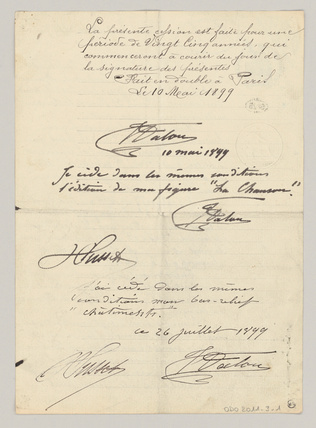 La présente cession est faite pour une
période de Vingt Cinq années, qui
commenceront à courir du jour de
la signature des présentes
Fait en double à Paris
Le 10 Mai 1899
J Dalou
10 mai 1899
Je cède dans les mêmes conditions
l'édition de ma figure "La Chanson."
J Dalou
J'ai cédé dans les mêmes
conditions mon bas-relief
"châtiments".
ce 26 juillet 1899
J Dalou